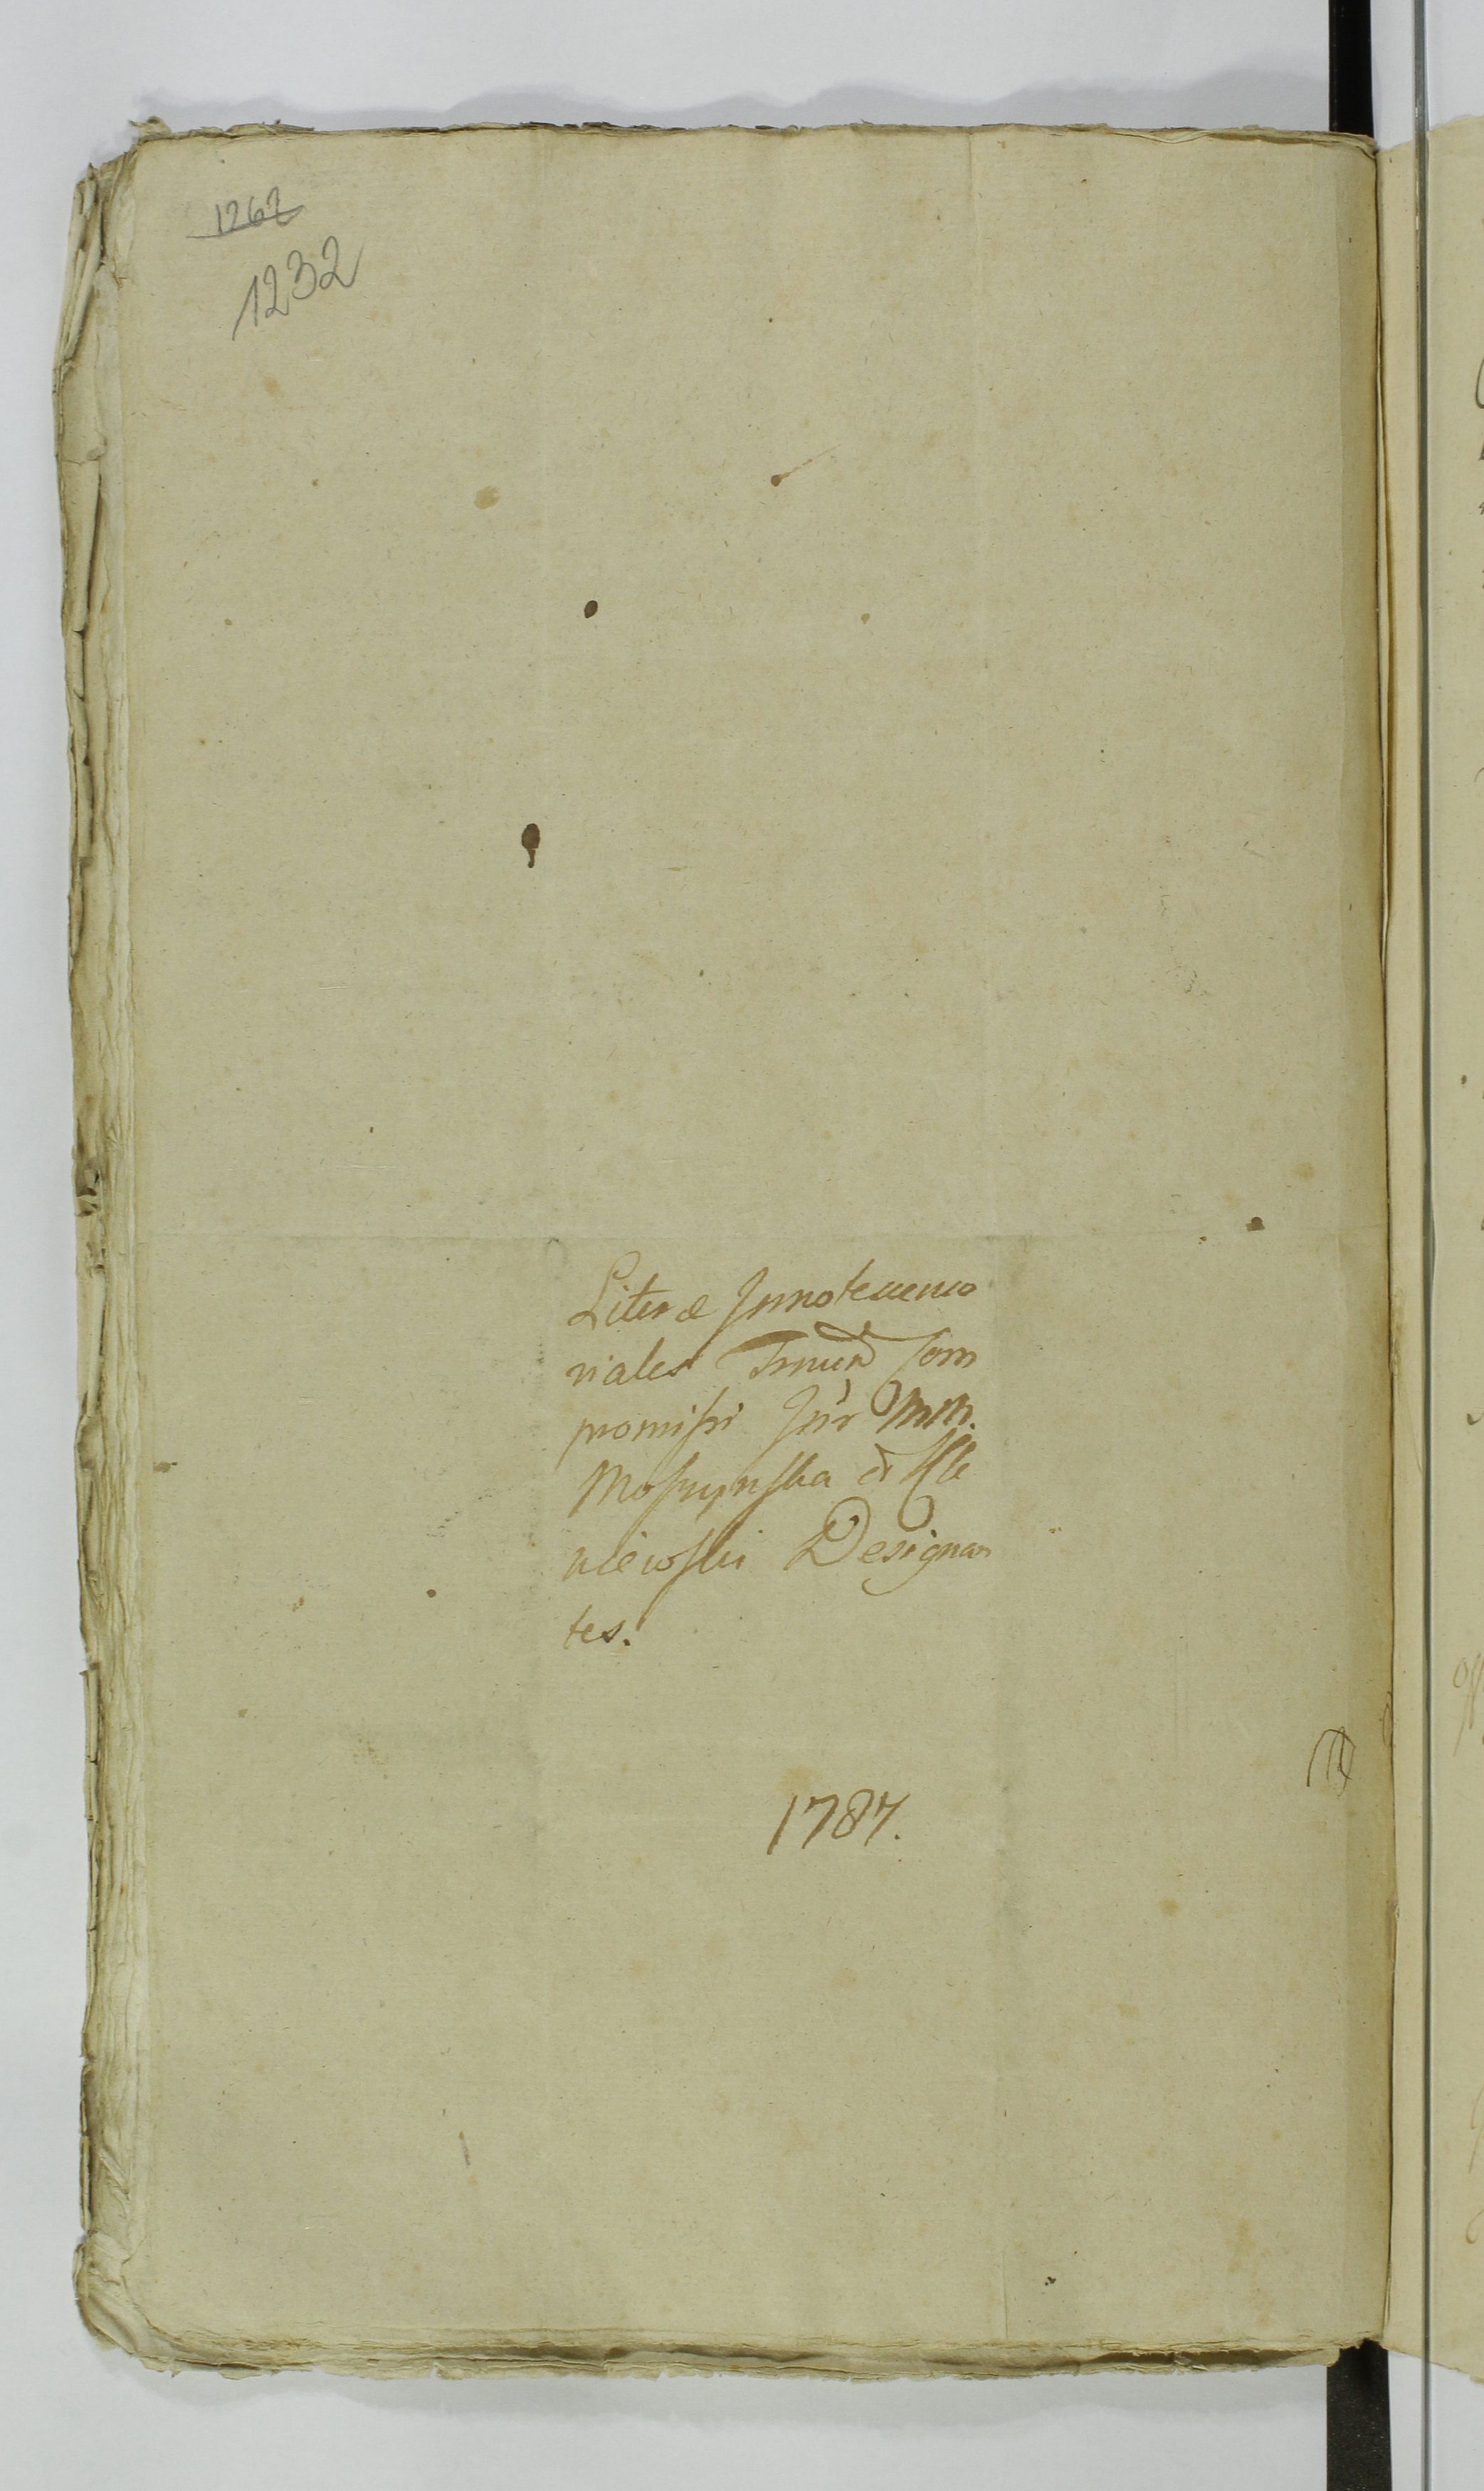 1262
1232
Literæ Innotescenco
niales Tmun Com
promissi Inr MM.
Moszynska et Kle
niewski Designan
tes.
1787.